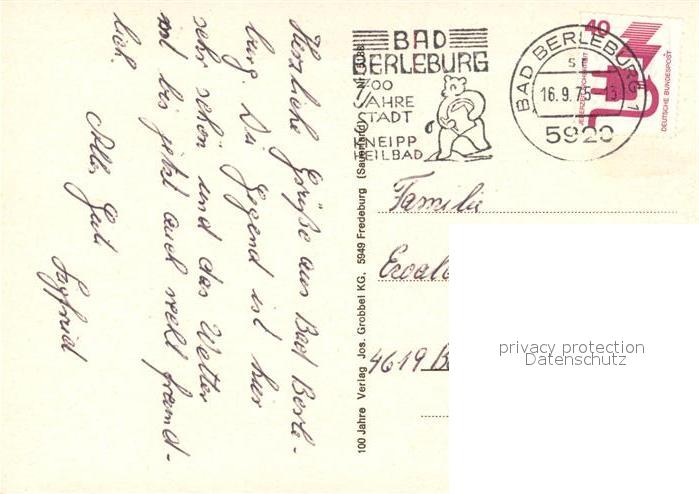 Herzliche Grüße aus Bad Berle-
burg. Die Gegend ist hier
sehr schön und das Wetter
mit bis jetzt auch recht freund-
lich.
Alles Gute
Siegfried
Nr. 5088
100 Jahre Verlag Jos. Grobbel KG, 5949 Fredeburg (Sauerland)
BAD
BERLEBURG
700
JAHRE
STADT
KNEIPP
HEILBAD
BAD BERLEBURG 1
s
16.9.75-13
5920
40
JEDERZEIT SICHERHEIT
DEUTSCHE BUNDESPOST
Familie
4619 B
privacy protection
Datenschutz